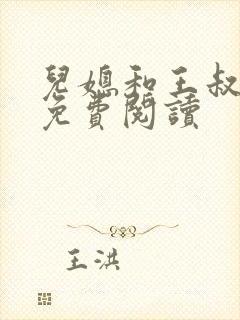 兒媳和王叔
免費閱讀
王洪